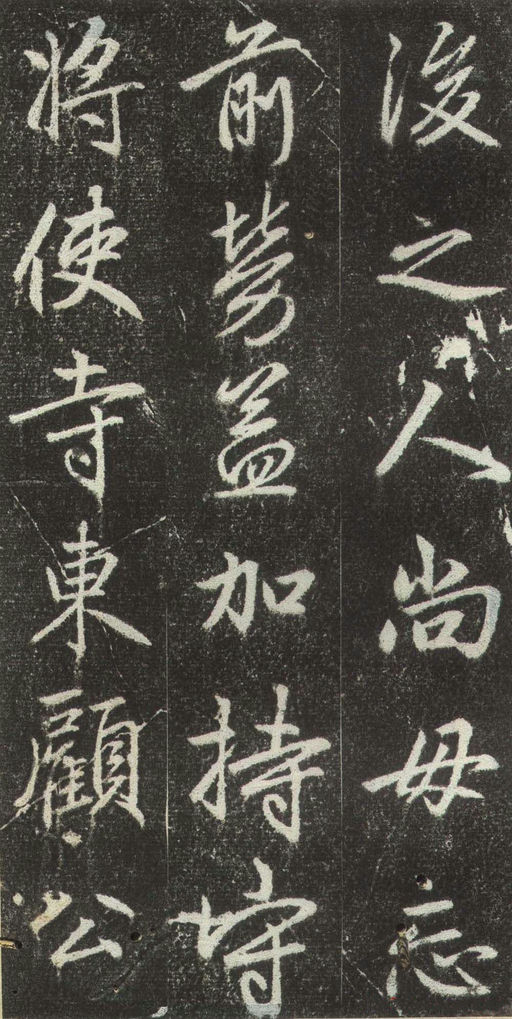 後之人尚毋忘
前勞益加持
將使寺東顧公